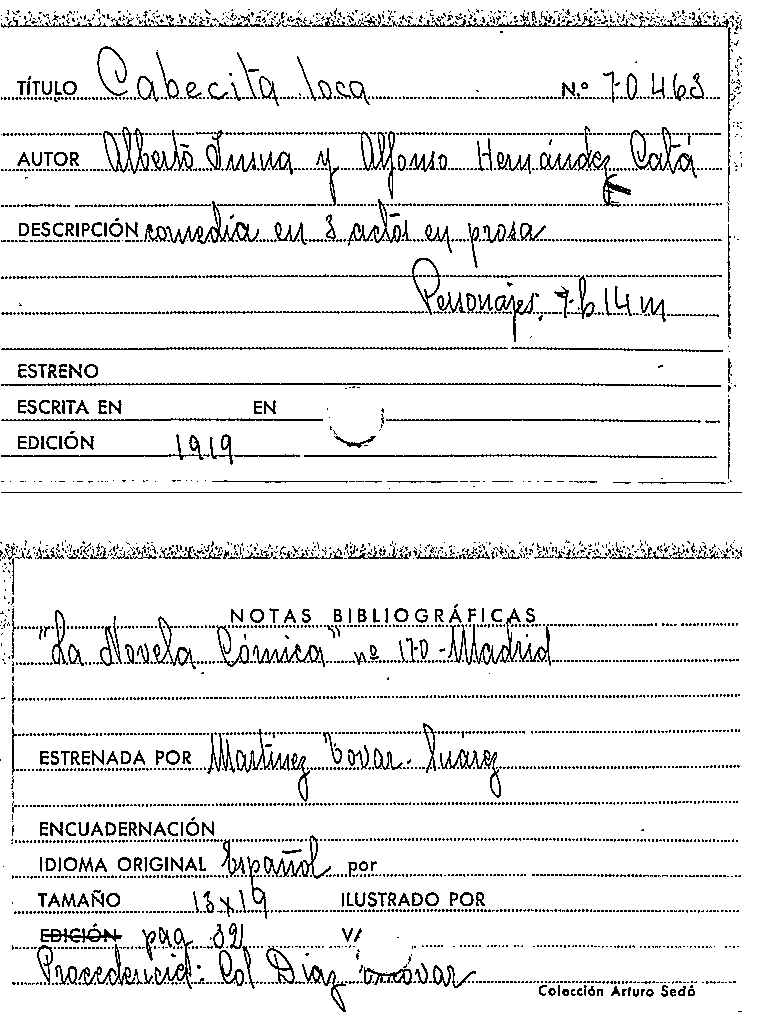 TÍTULO Cabecita loca N.º 70463
AUTOR Alberto Insua y Alfonso Hernández Catá
DESCRIPCIÓN comedia en 3 actos en prosa
Personajes, 7 h 14 m
ESTRENO
ESCRITA EN EN
EDICIÓN 1919
NOTAS BIBLIOGRÁFICAS
"La Novela Cómica" nº 170 - Madrid
ESTRENADA POR Martínez Tovar - Suárez
ENCUADERNACIÓN
IDIOMA ORIGINAL Español por
TAMAÑO 13x19 ILUSTRADO POR
EDICIÓN pag 32 V/
Procedencia: Col Díaz
Colección Arturo Sedó